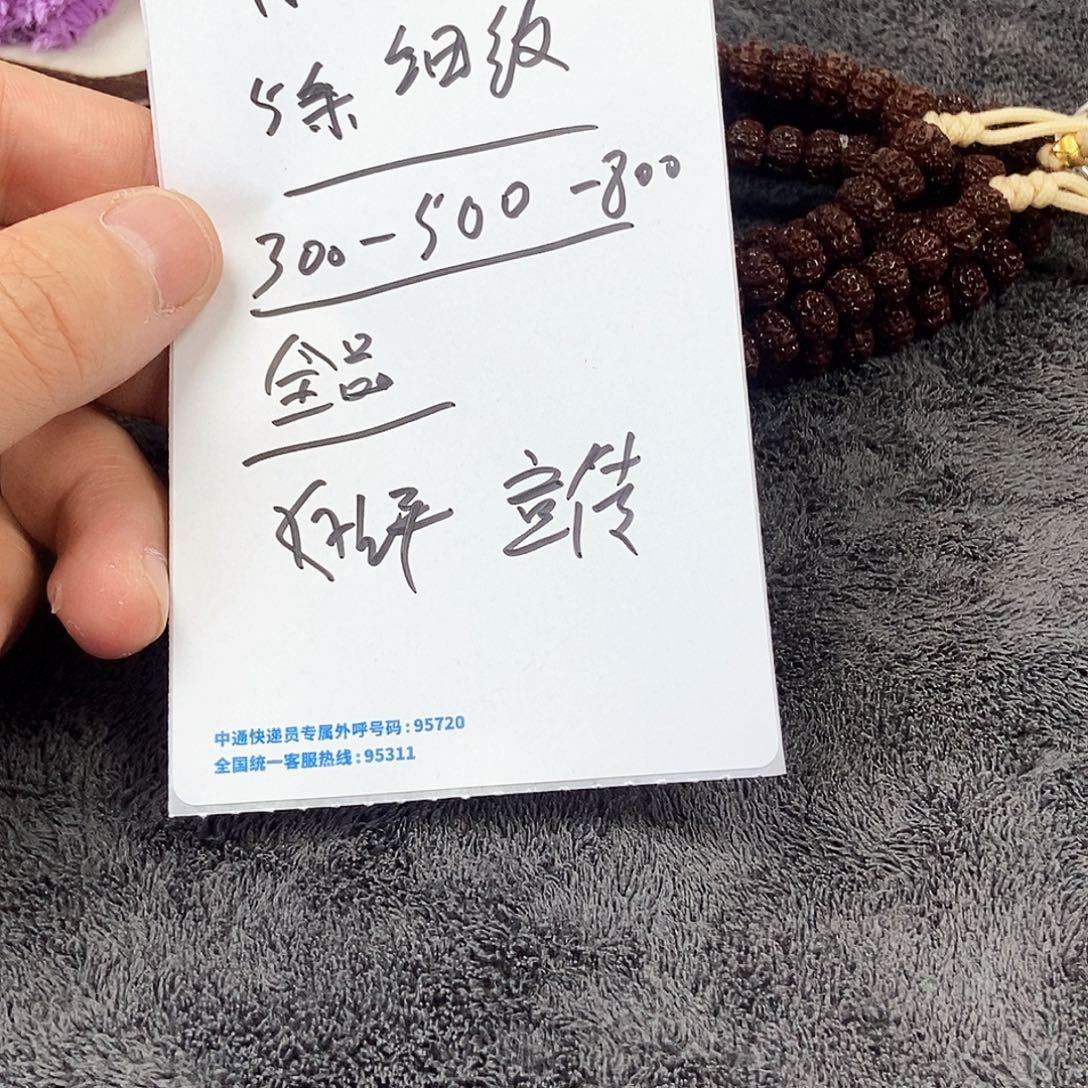 5条 细纹
300-500-800
全品
好评 宣传
中通快递员专属外呼号码:95720
全国统一客服热线:95311